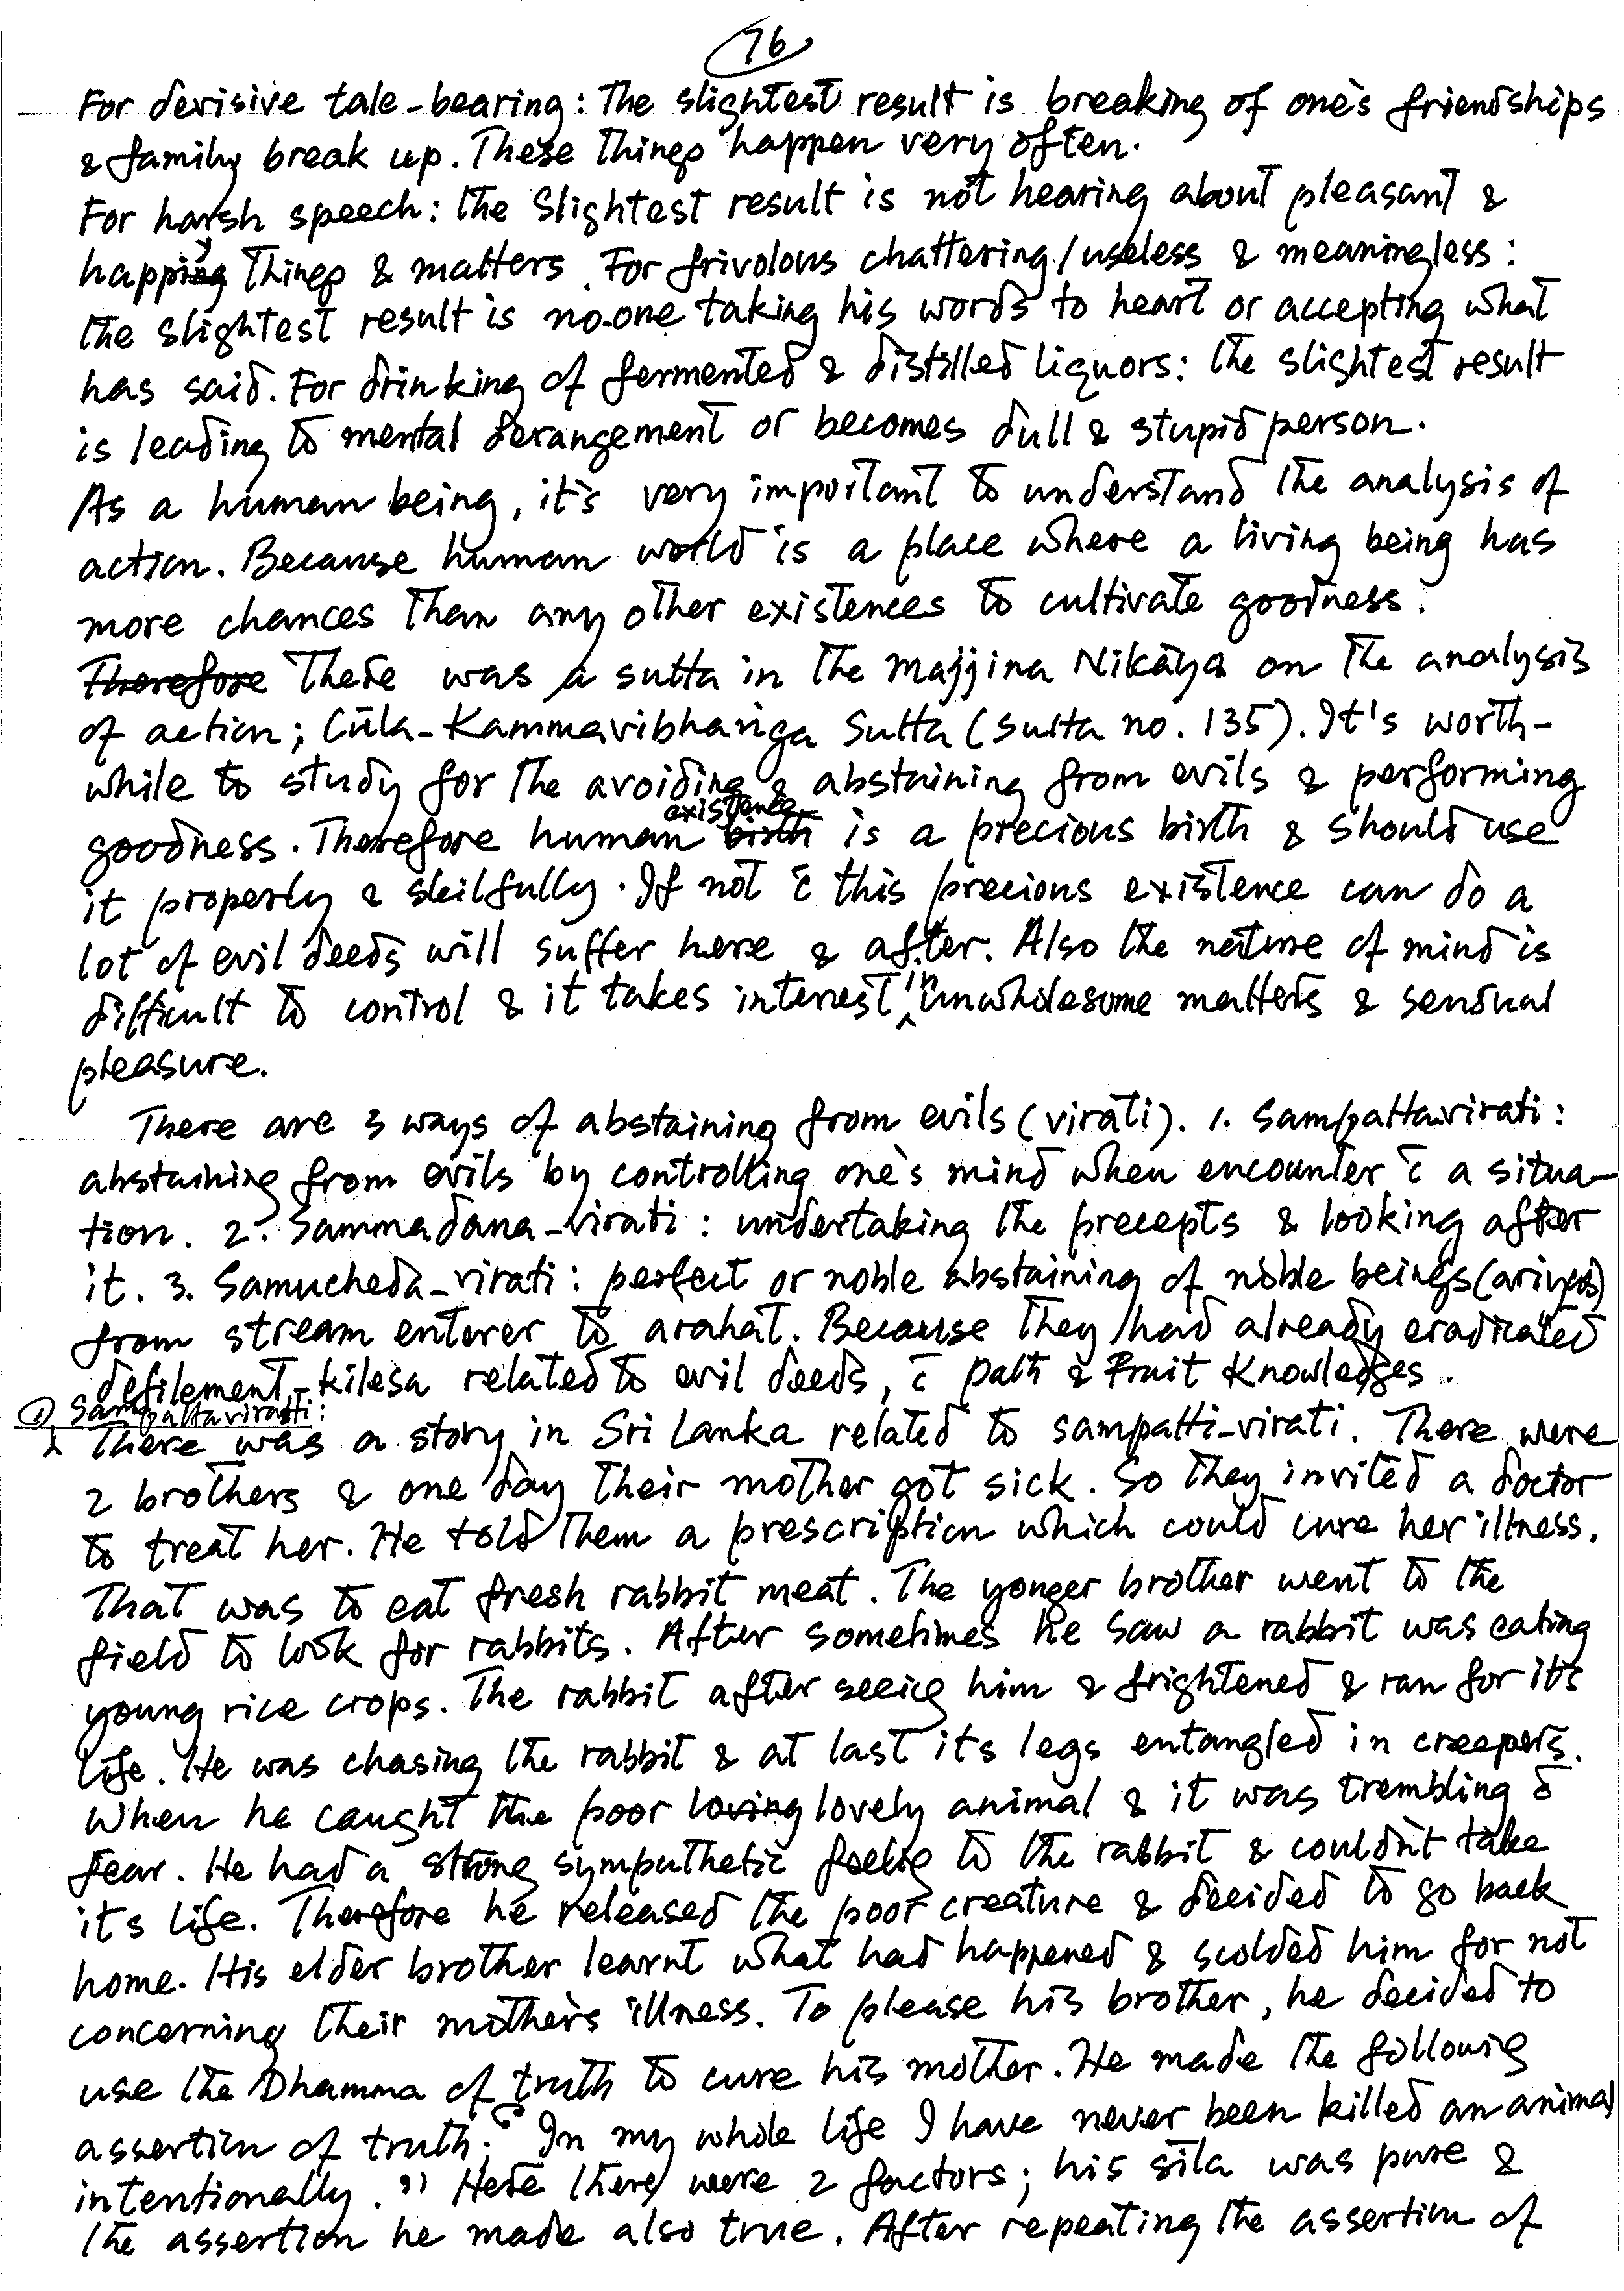 76
For derisive tale-bearing: The slightest result is breaking of one's friendships
& family break up. These things happen very often.
For harsh speech: the slightest result is not hearing about pleasant &
happy things & matters. For frivolous chattering/useless & meaningless:
the slightest result is no-one taking his words to heart or accepting what
has said. For drinking of fermented & distilled liquors: the slightest result
is leading to mental derangement or becomes dull & stupid person.
As a human being, it's very important to understand the analysis of
action. Because human world is a place where a living being has
more chances than any other existences to cultivate goodness.
Therefore There was a sutta in the Majjina Nikāya on the analysis
of action; Cūla-Kammavibhaṅga Sutta (sutta no. 135). It's worth-
while to study for the avoiding & abstaining from evils & performing
goodness. Therefore human birth existence is a precious birth & should use
it properly & skilfully. If not c̄ this precious existence can do a
lot of evil deeds will suffer here & after. Also the nature of mind is
difficult to control & it takes interest in unwholesome matters & sensual
pleasure.
There are 3 ways of abstaining from evils (virati). 1. Sampattavirati:
abstaining from evils by controlling one's mind when encounter c̄ a situa-
tion. 2. Sammadana-virati: undertaking the precepts & looking after
it. 3. Samucheda-virati: perfect or noble abstaining of noble beings (ariyas)
from stream enterer to arahat. Because they had already eradicated
defilement-kilesa related to evil deeds, c̄ Path & Fruit Knowledges.
① Sampattavirati:
There was a story in Sri Lanka related to sampatti-virati. There were
2 brothers & one day their mother got sick. So they invited a doctor
to treat her. He told them a prescription which could cure her illness.
That was to eat fresh rabbit meat. The yonger brother went to the
field to look for rabbits. After sometimes he saw a rabbit was eating
young rice crops. The rabbit after seeing him & frightened & ran for it's
life. He was chasing the rabbit & at last its legs entangled in creepers.
When he caught the poor loving lovely animal & it was trembling c̄
fear. He had a strong sympathetic feeling to the rabbit & couldn't take
it's life. Therefore he released the poor creature & decided to go back
home. His elder brother learnt what had happened & scolded him for not
concerning their mother's illness. To please his brother, he decided to
use the Dhamma of truth to cure his mother. He made the following
assertion of truth: "In my whole life I have never been killed an animal
intentionally." Here there were 2 factors; his sīla was pure &
the assertion he made also true. After repeating the assertion of